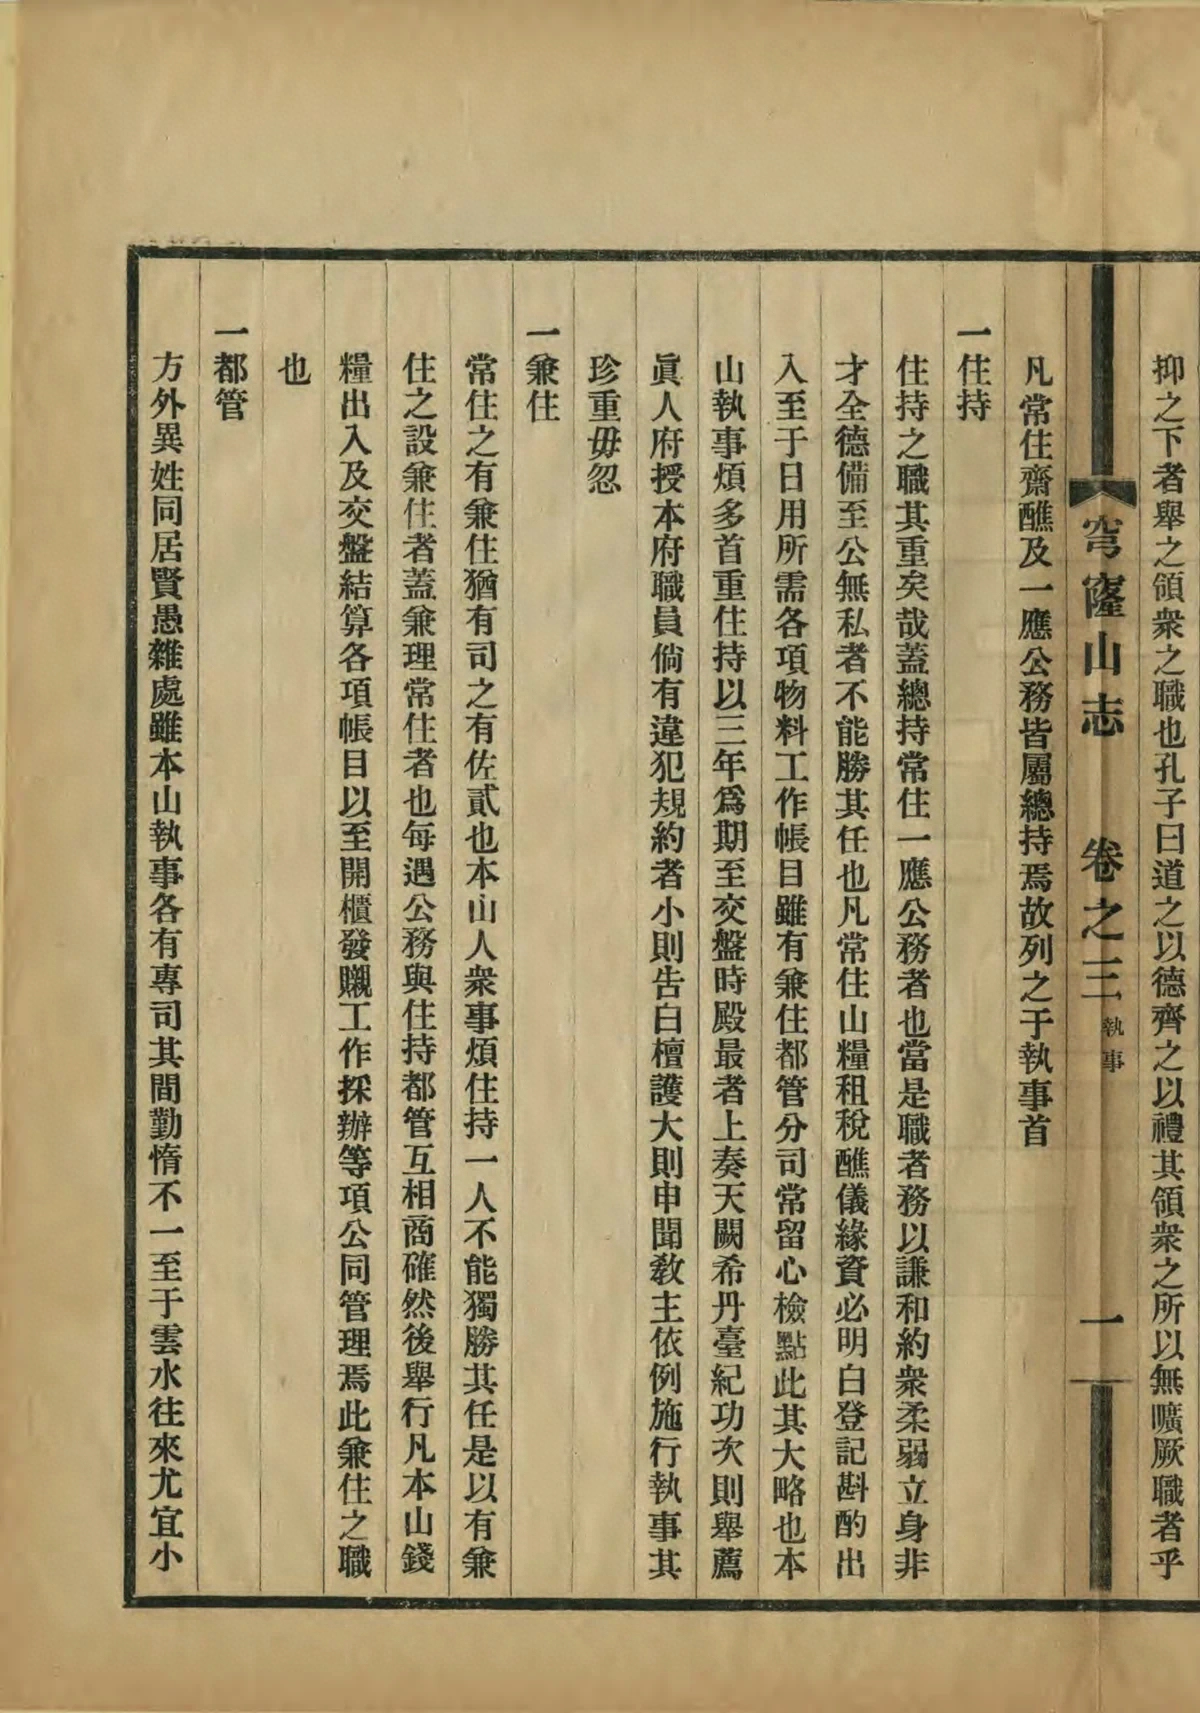 抑之下者舉之領衆之職也孔子曰道之以德齊之以禮其領衆之所以無曠厥職者乎
穹窿山志　卷之三　執事　一
凡常住齋醮及一應公務皆屬總持焉故列之于執事首
一住持
住持之職其重矣哉蓋總持常住一應公務者也當是職者務以謙和約衆柔弱立身非
才全德備至公無私者不能勝其任也凡常住山糧租稅醮儀緣資必明白登記斟酌出
入至于日用所需各項物料工作帳目雖有兼住都管分司常留心檢點此其大略也本
山執事煩多首重住持以三年爲期至交盤時殿最者上奏天闕希丹臺紀功次則舉薦
眞人府授本府職員倘有違犯規約者小則告白檀護大則申聞教主依例施行執事其
珍重毋忽
一兼住
常住之有兼住猶有司之有佐貳也本山人衆事煩住持一人不能獨勝其任是以有兼
住之設兼住者蓋兼理常住者也每遇公務與住持都管互相商確然後舉行凡本山錢
糧出入及交盤結算各項帳目以至開櫃發贖工作採辦等項公同管理焉此兼住之職
也
一都管
方外異姓同居賢愚雜處雖本山執事各有專司其間勤惰不一至于雲水往來尤宜小